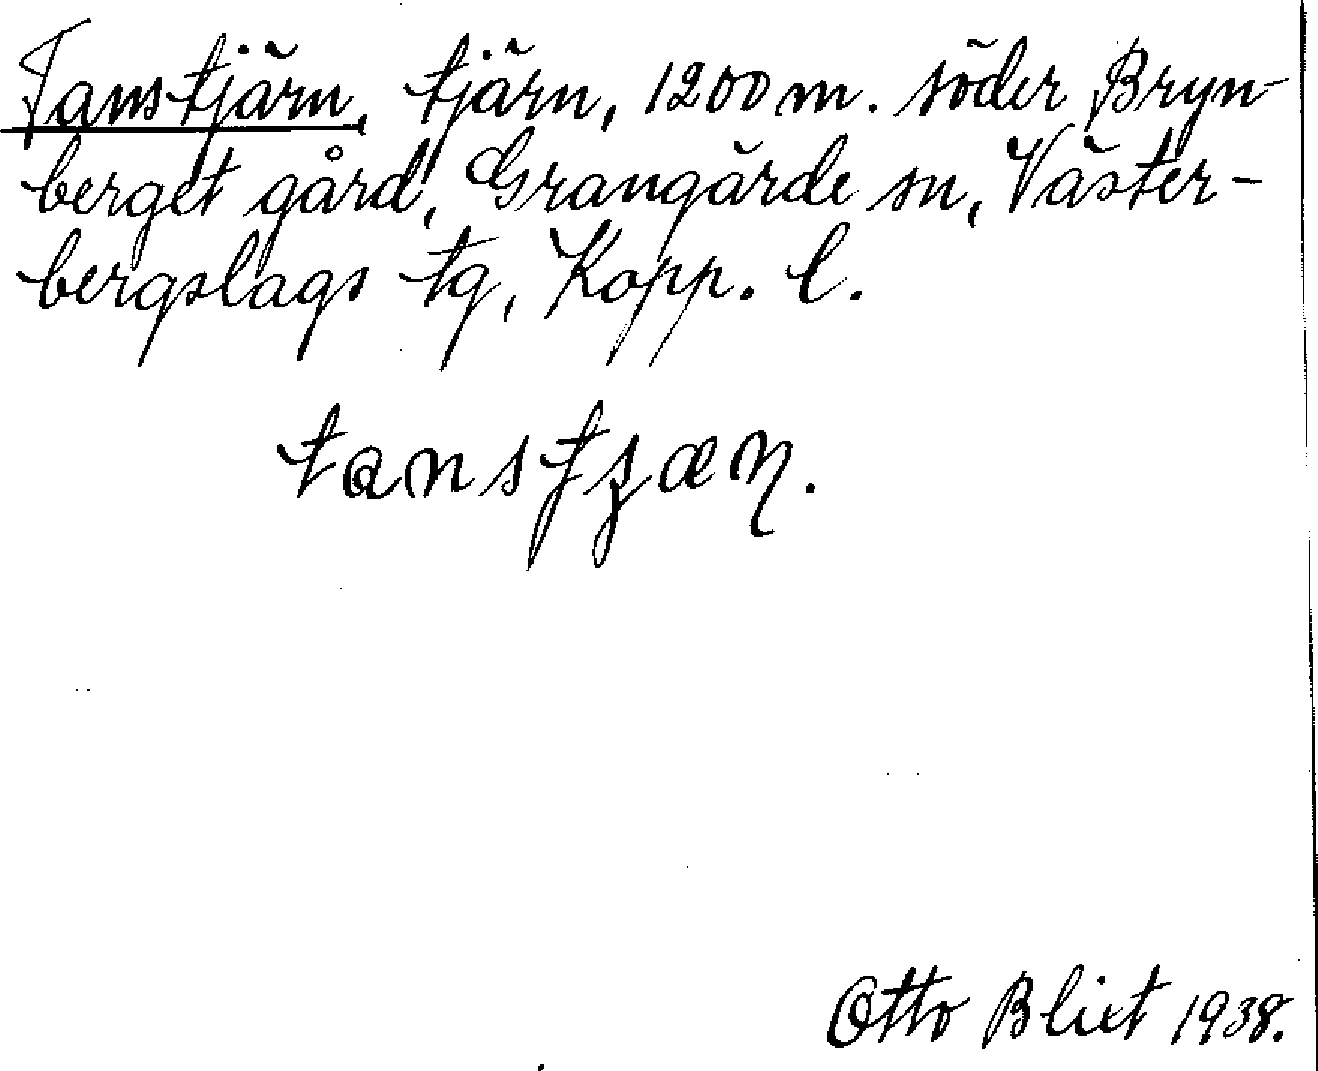 Tanstjärn, tjärn, 1200 m. söder Bryn-
berget gård, Grangärde sn, Väster-
bergslags tg, Kopp. l.
Otto Blixt 1938.